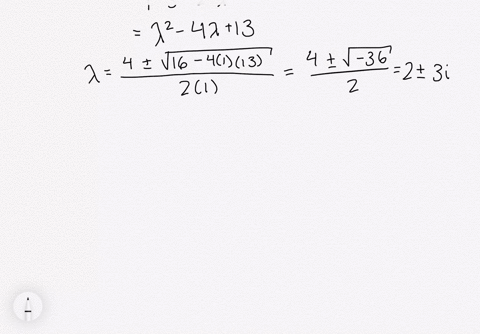 = λ² - 4λ + 13
λ = (4 ± √(16 - 4(1)(13))) / 2(1) = (4 ± √-36) / 2 = 2 ± 3i